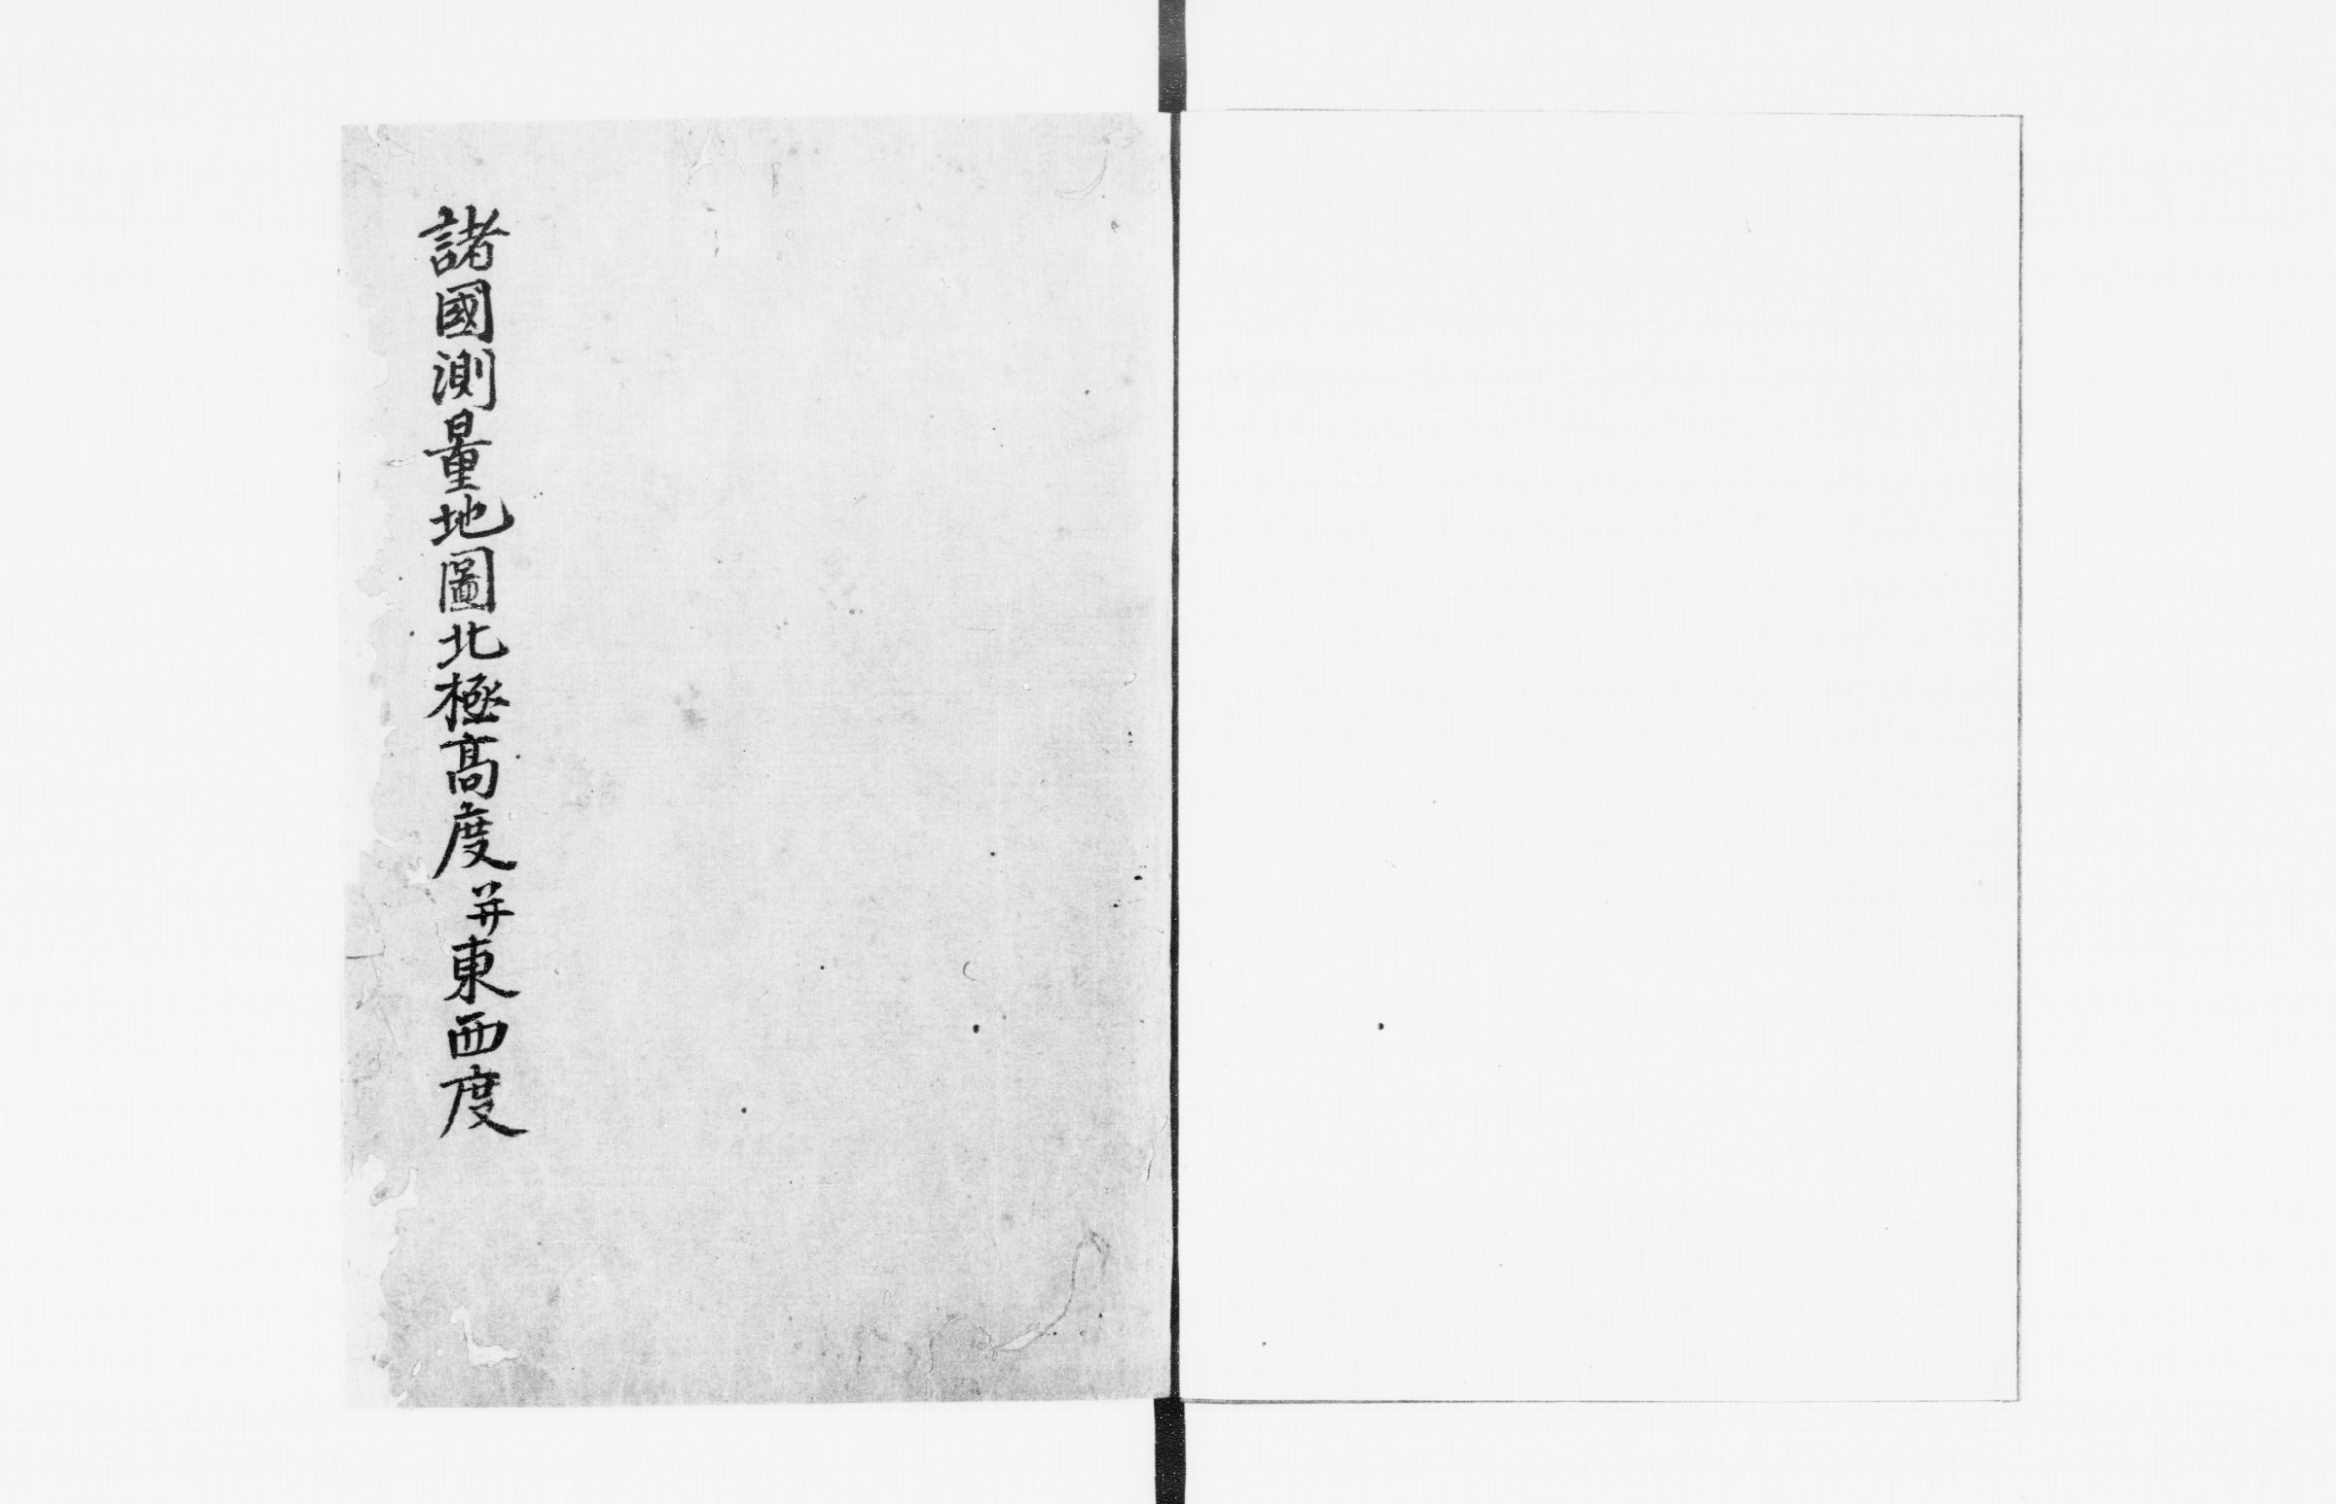 諸國測量地圖北極高度并東西度